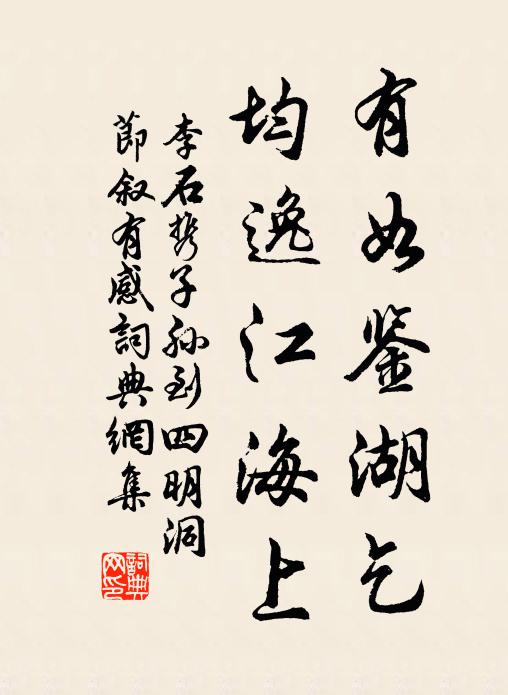 有如鉴湖乞
均逸江海上
李石携子孙到四明洞
節叙有感詞典網集
詞典网印